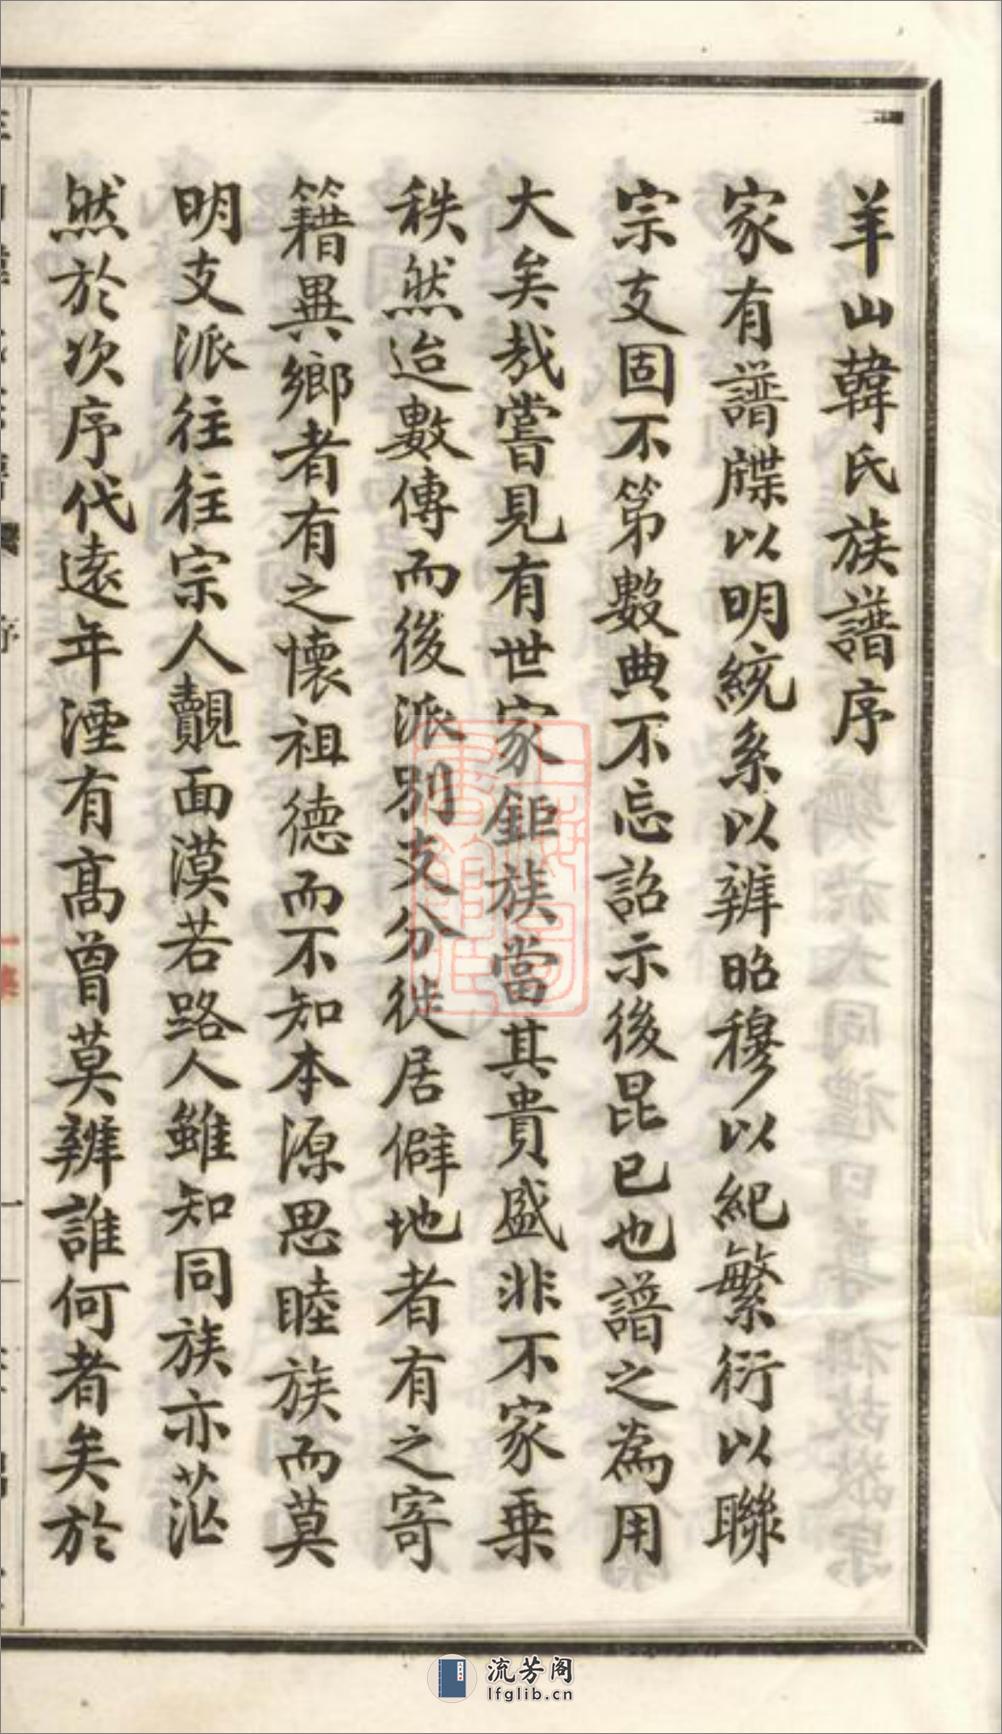 羊山韓氏族譜序
家有譜牒以明統系以辨昭穆以紀繁衍以聯
宗支固不第數典不忘詔示後昆已也譜之為用
大矣哉嘗見有世家鉅族當其貴盛非不家乗
秩然迨數傳而後派別支分徙居僻地者有之寄
籍異鄉者有之懷祖德而不知本源思睦族而莫
明支派往往宗人覿面漠若路人雖知同族亦茫
然於次序代遠年湮有高曾莫辨誰何者矣於
序
一
流芳阁
lfglib.cn